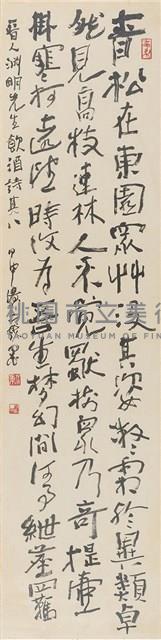 青松在東園眾艸沒其姿凝霜殄異類卓
然見高枝連林人不覺獨樹眾乃奇提壺
掛寒柯遠望時復為吾生夢幻間何事紲塵羈
晉人淵明先生飲酒詩其八 甲申
桃園市立美術
TAOYUAN MUSEUM OF FINE